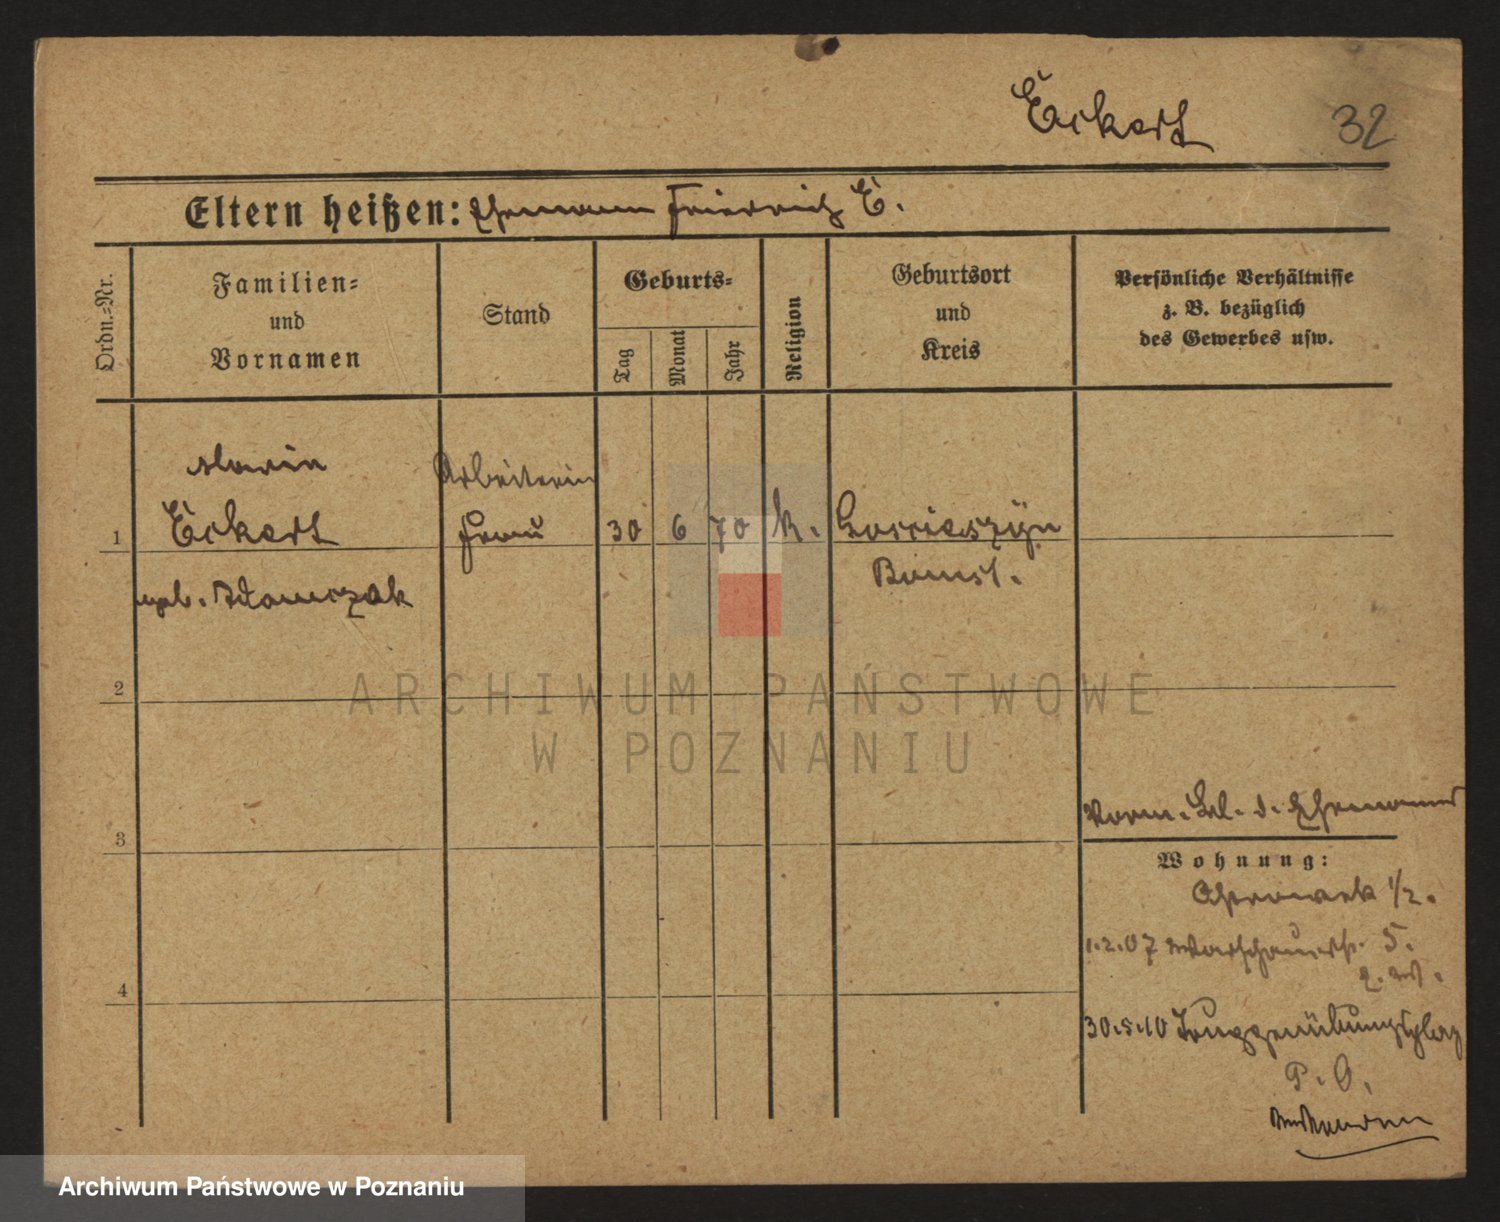 Eckert 32
Eltern heißen: Ehemann Friedrich E.
Ordn.=Nr.
Familien=
und
Vornamen
Stand
Geburts=
Tag
Monat
Jahr
Religion
Geburtsort
und
Kreis
Persönliche Verhältnisse
z. B. bezüglich
des Gewerbes usw.
Maria Arbeiterin
1 Eckert Frau 30 6 70 k.
geb. Adamczak Bomst.
2
ARCHIWUM PAŃSTWOWE
W POZNANIU
3
d. Ehemannes
Wohnung:
1/2.
1.2.07 Warschauerstr. 5.
4
30.5.10 Truppenübungsplaz
P. O.
Archiwum Państwowe w Poznaniu